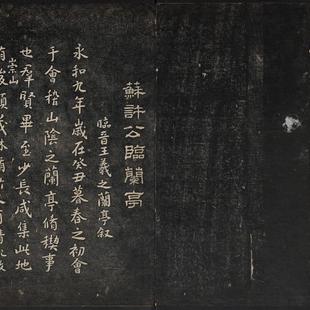 蘇許公臨蘭亭
臨晉王羲之蘭亭叙
永和九年歲在癸丑暮春之初會
于會稽山陰之蘭亭脩禊事
也羣賢畢至少長咸集此地
崇山
有峻領茂林